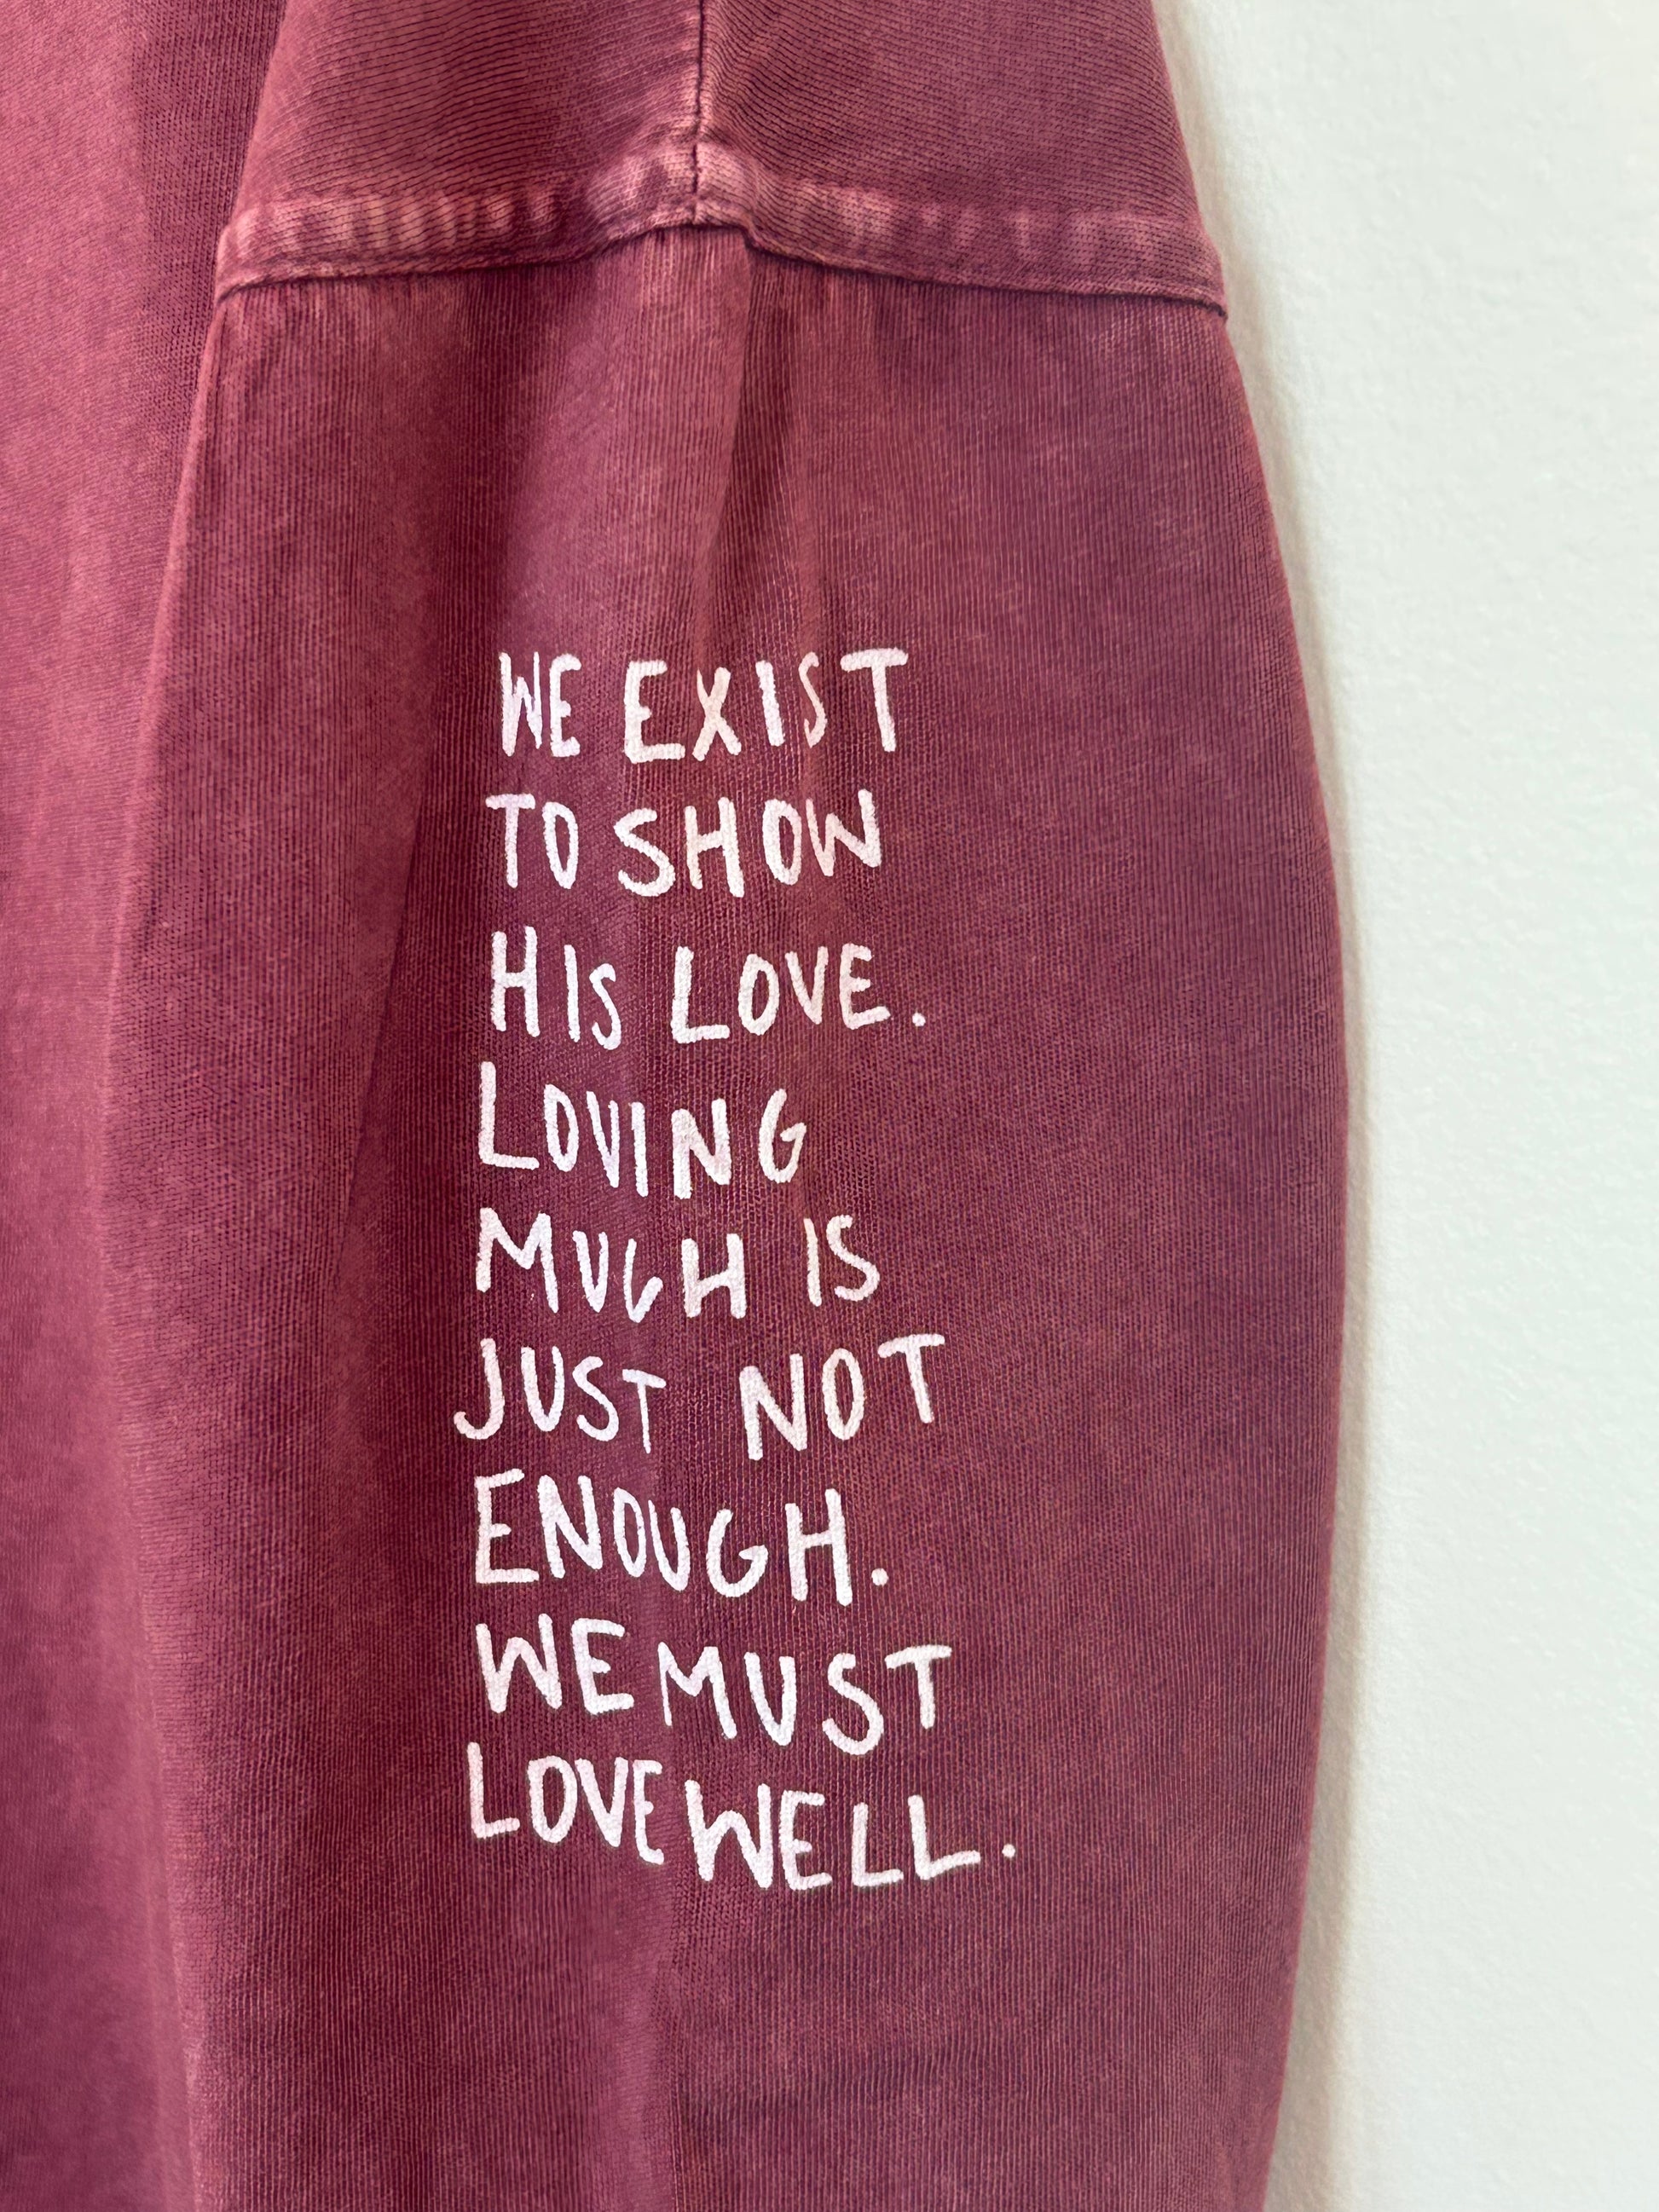 WE EXIST
TO SHOW
HIS LOVE.
LOVING
MUCH IS
JUST NOT
ENOUGH.
WE MUST
LOVE WELL.